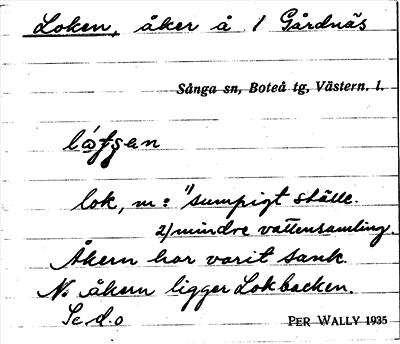 Loken, åker å 1 Gårdnäs
Sånga sn, Boteå tg, Västern. l.
lok, m: 1) sumpigt ställe.
2) mindre vattensamling.
Åkern har varit sank.
N. åkern ligger Lokbacken.
Se d.o
PER WALLY 1935